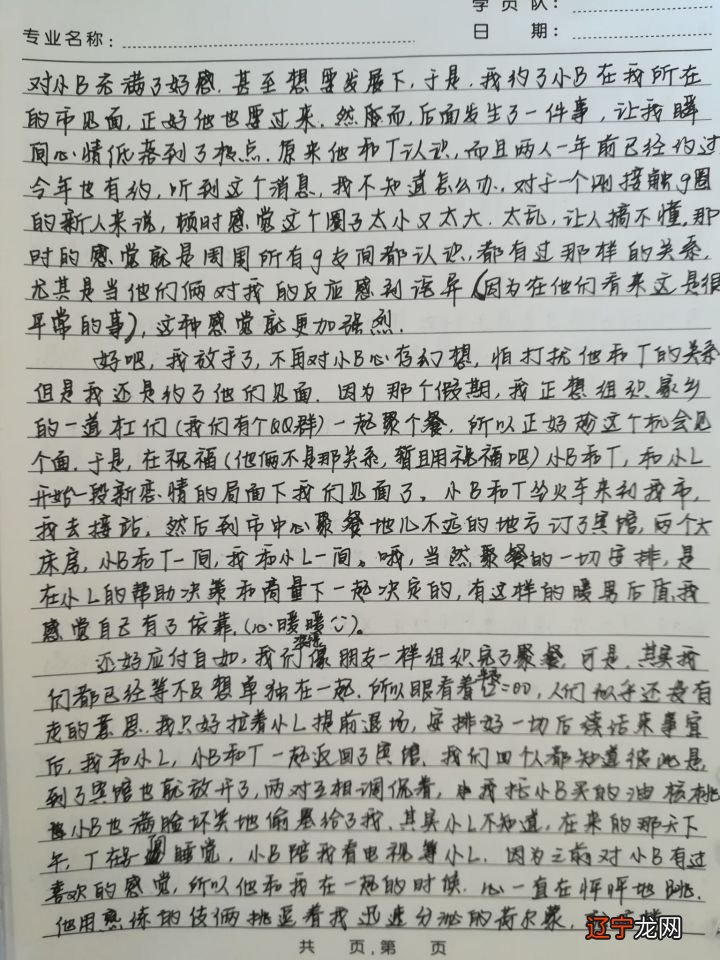 学员队：
专业名称：
日 期：
对小B充满了好感，甚至想要发展下，于是，我约了小B在我所在
的市见面，正好他也要过来。然而，后面发生了一件事，让我瞬
间心情低落到了极点。原来他和T认识，而且两人一年前已经约过
今年也有约，听到这个消息，我不知道怎么办，对于一个刚接触g圈
的新人来说，顿时感觉这个圈子太小又太大，太乱，让人搞不懂，那
时的感觉就是周围所有g友间都认识，都有过那样的关系，
尤其是当他们俩对我的反应感到诧异（因为在他们看来这是很
平常的事），这种感觉就更加强烈。
好吧，我放手了，不再对小B心存幻想，怕打扰他和T的关系
但是我还是约了他们见面。因为那个假期，我正想组织家乡
的一道杠们（我们有个QQ群）一起聚个餐，所以正好趁这个机会见
个面。于是，在祝福（他俩不是那关系，暂且用祝福吧）小B和T，和小L
开始一段新恋情的局面下我们见面了。小B和T坐火车来到我市，
我去接站，然后到市中心聚餐地儿不远的地方订了宾馆，两个大
床房，小B和T一间，我和小L一间。哦，当然聚餐的一切安排，是
在小L的帮助决策和商量下一起决定的，有这样的暖男后盾，我
感觉自己有了依靠，（心暖暖）。
还好应付自如，我们像朋友一样组织完了聚餐，可是，其实我
们都已经等不及想单独在一起，所以眼看着12=00，人们似乎还没有
走的意思，我只好拉着小L提前退场，安排好一切后续话来事宜
后，我和小L，小B和T一起返回了宾馆，我们四个人都知道彼此是，
到了宾馆也就放开了，两对互相调侃着，我托小B买的油核桃
小B也满脸坏笑地偷塞给了我，其实小L不知道，在来的那天下
午，T在睡觉，小B陪我看电视等小L。因为之前对小B有过
喜欢的感觉，所以他和我在一起的时候，心一直在怦怦地跳，
他用熟练的伎俩挑逗着我迅速分泌的荷尔蒙，
共 页，第 页
辽宁龙网